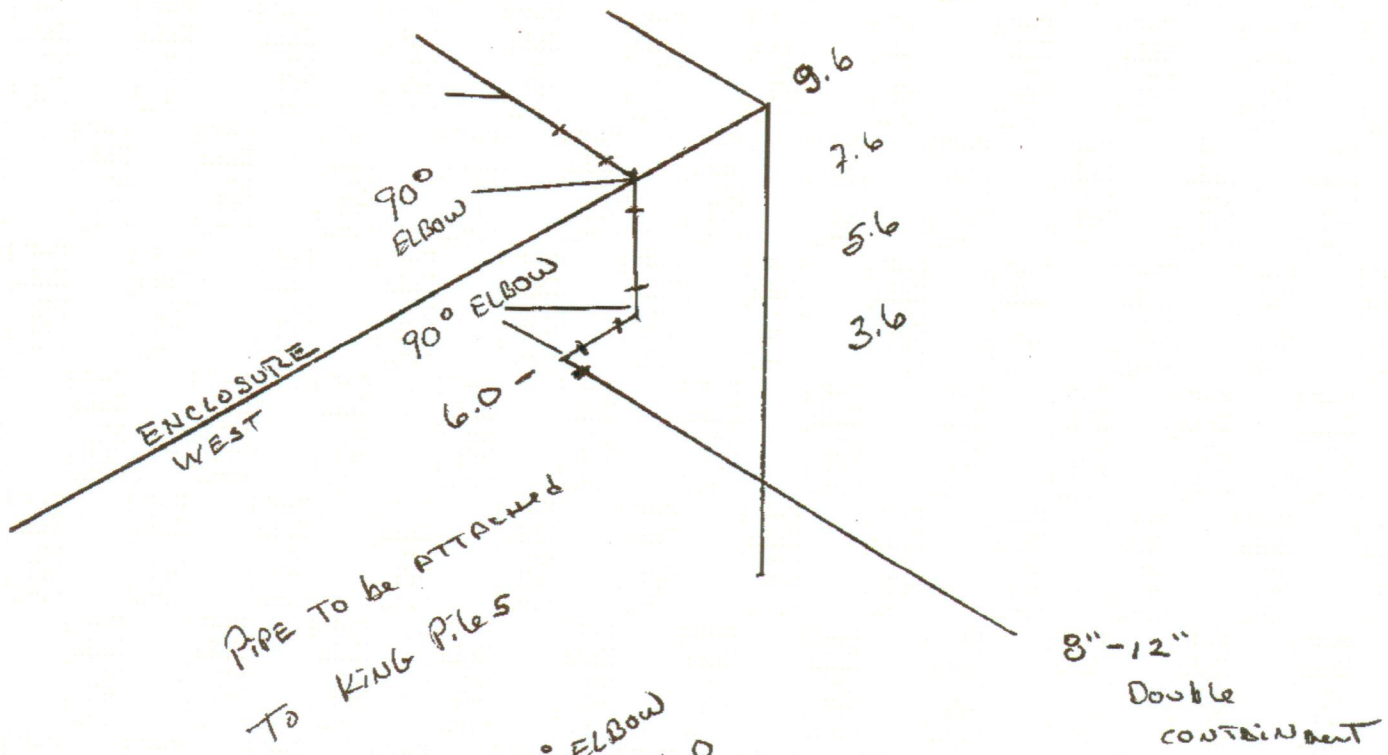 9.6
7.6
5.6
3.6
90°
ELBOW
90° ELBOW
6.0 -
ENCLOSURE
WEST
PIPE To be ATTACHED
To KING Piles
8"-12"
Double
CONTAINMENT
° ELBOW